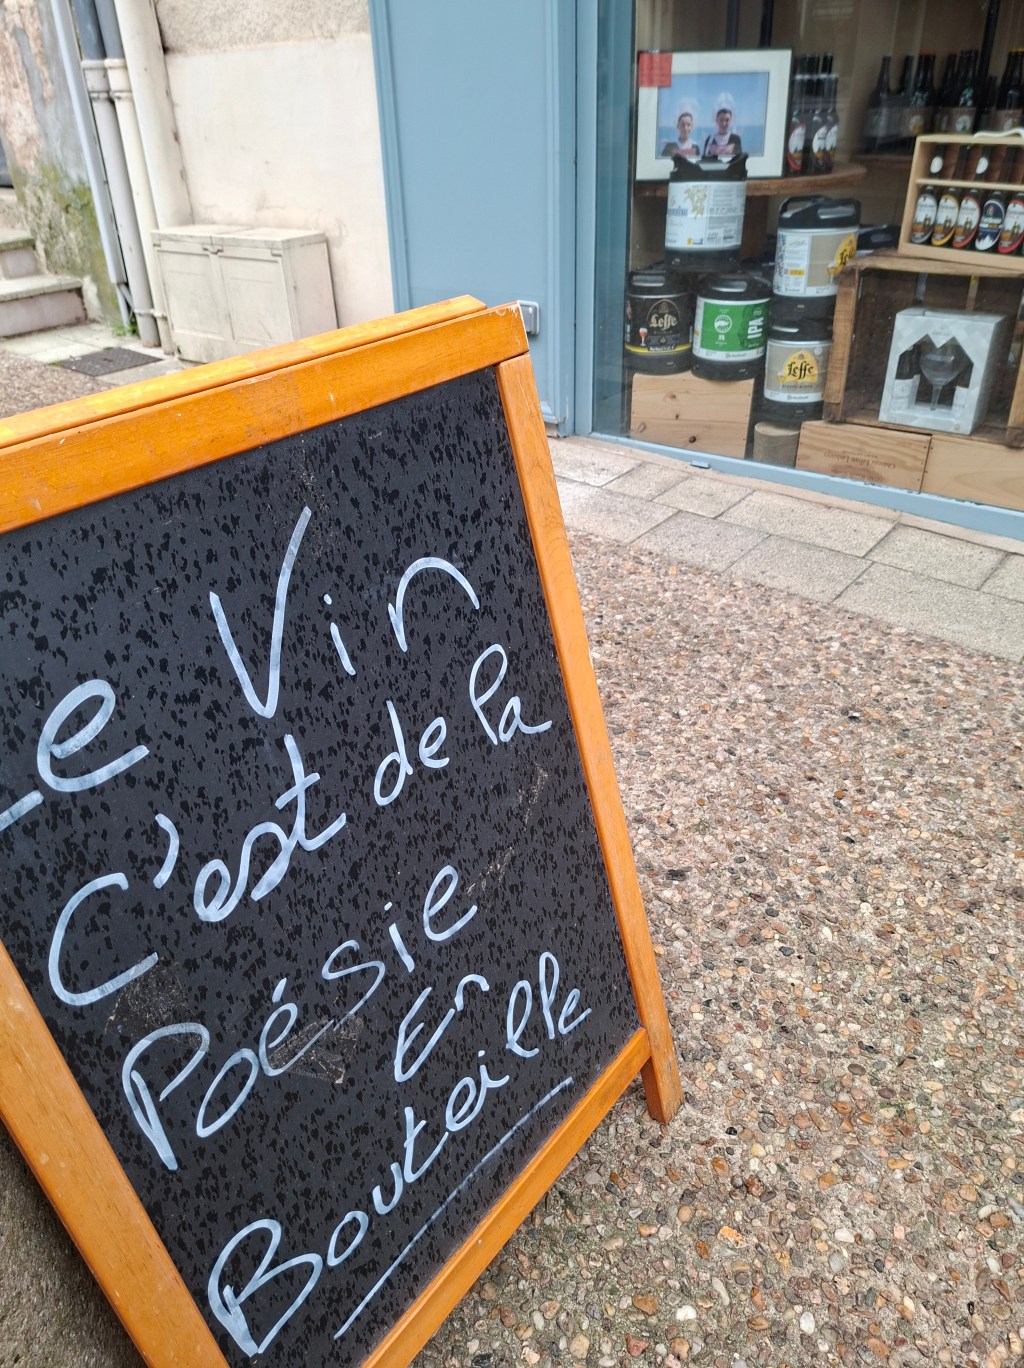 Le Vin
C'est de la
Poésie
En
Bouteille
Leffe
IPA
Leffe